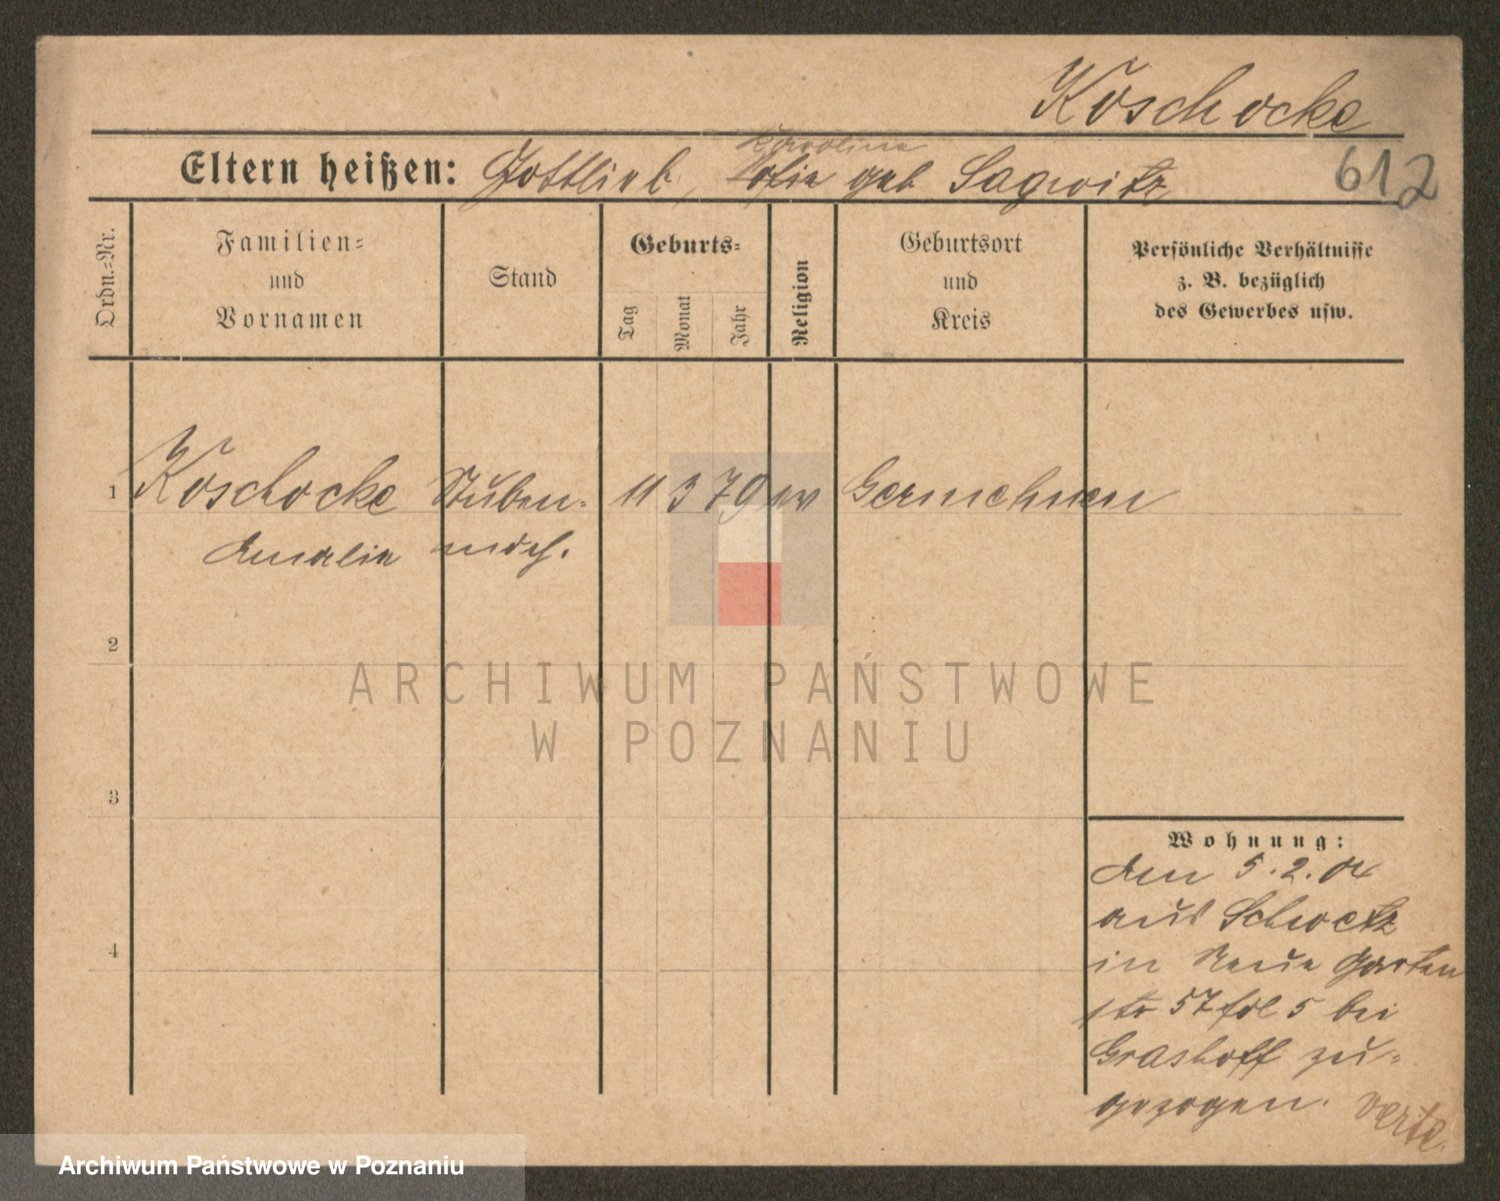 Koschocke
Eltern heißen: Gottlieb, Karoline geb Sagwitz
612
Ordn.=Nr.
Familien=
und
Vornamen
Stand
Geburts=
Tag
Monat
Jahr
Religion
Geburtsort
und
Kreis
Persönliche Verhältnisse
z. B. bezüglich
des Gewerbes usw.
1 Koschocke Stuben= 11 3 79 ev
Amalie mdch.
2
ARCHIWUM PAŃSTWOWE
W POZNANIU
3
Wohnung:
den 5.2.04
aus Schwetz
in Neue Garten
str 57 fol 5 bei
Grashoff zu=
gezogen. verte.
4
Archiwum Państwowe w Poznaniu